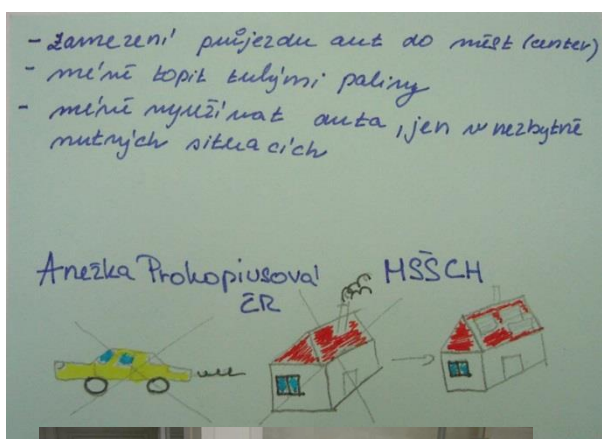 - zamezení průjezdu aut do měst (center)
- méně topit tuhými palivy
- méně využívat auta, jen v nezbytně
nutných situacích
Anežka Prokopiusová MSŠCH
ŽR